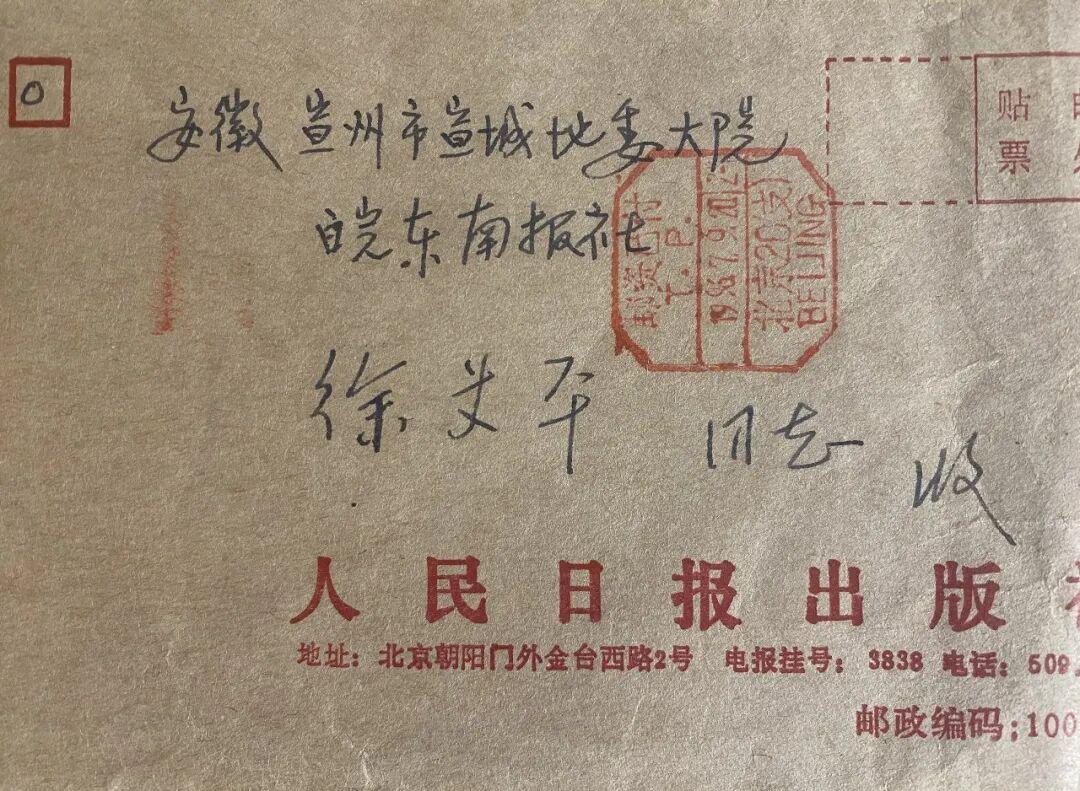 0
安徽宣州市宣城地委大院
皖东南报社
贴
票
邮资已付
T.P.
北京20支
BEIJING
徐 平 同志 收
人民日报出版
地址：北京朝阳门外金台西路2号 电报挂号：3838 电话：509
邮政编码：100